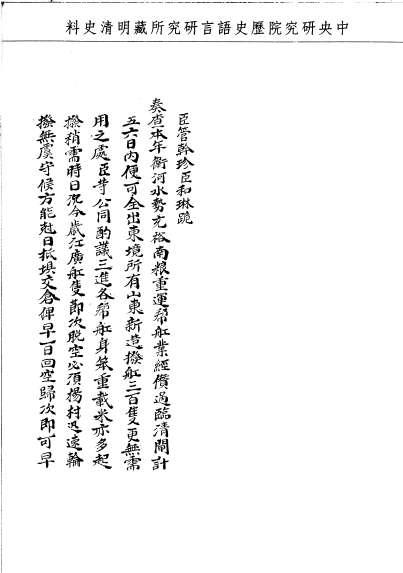 中央研究院歷史語言研究所藏明清史料
臣管幹珍臣和琳跪
奏查本年衛河水勢充裕南粮重運幫舡業經儹過臨清閘計
五六日内便可全出東境所有山東新造撥舡三百隻更無需
用之處臣等公同酌議三進各幫舡身笨重載米亦多起
撥稍需時日況今歲江廣舡隻節次脫空必須楊村迅速輪
撥無虞守候方能尅日抵壩交倉俾早一日回空歸次即可早